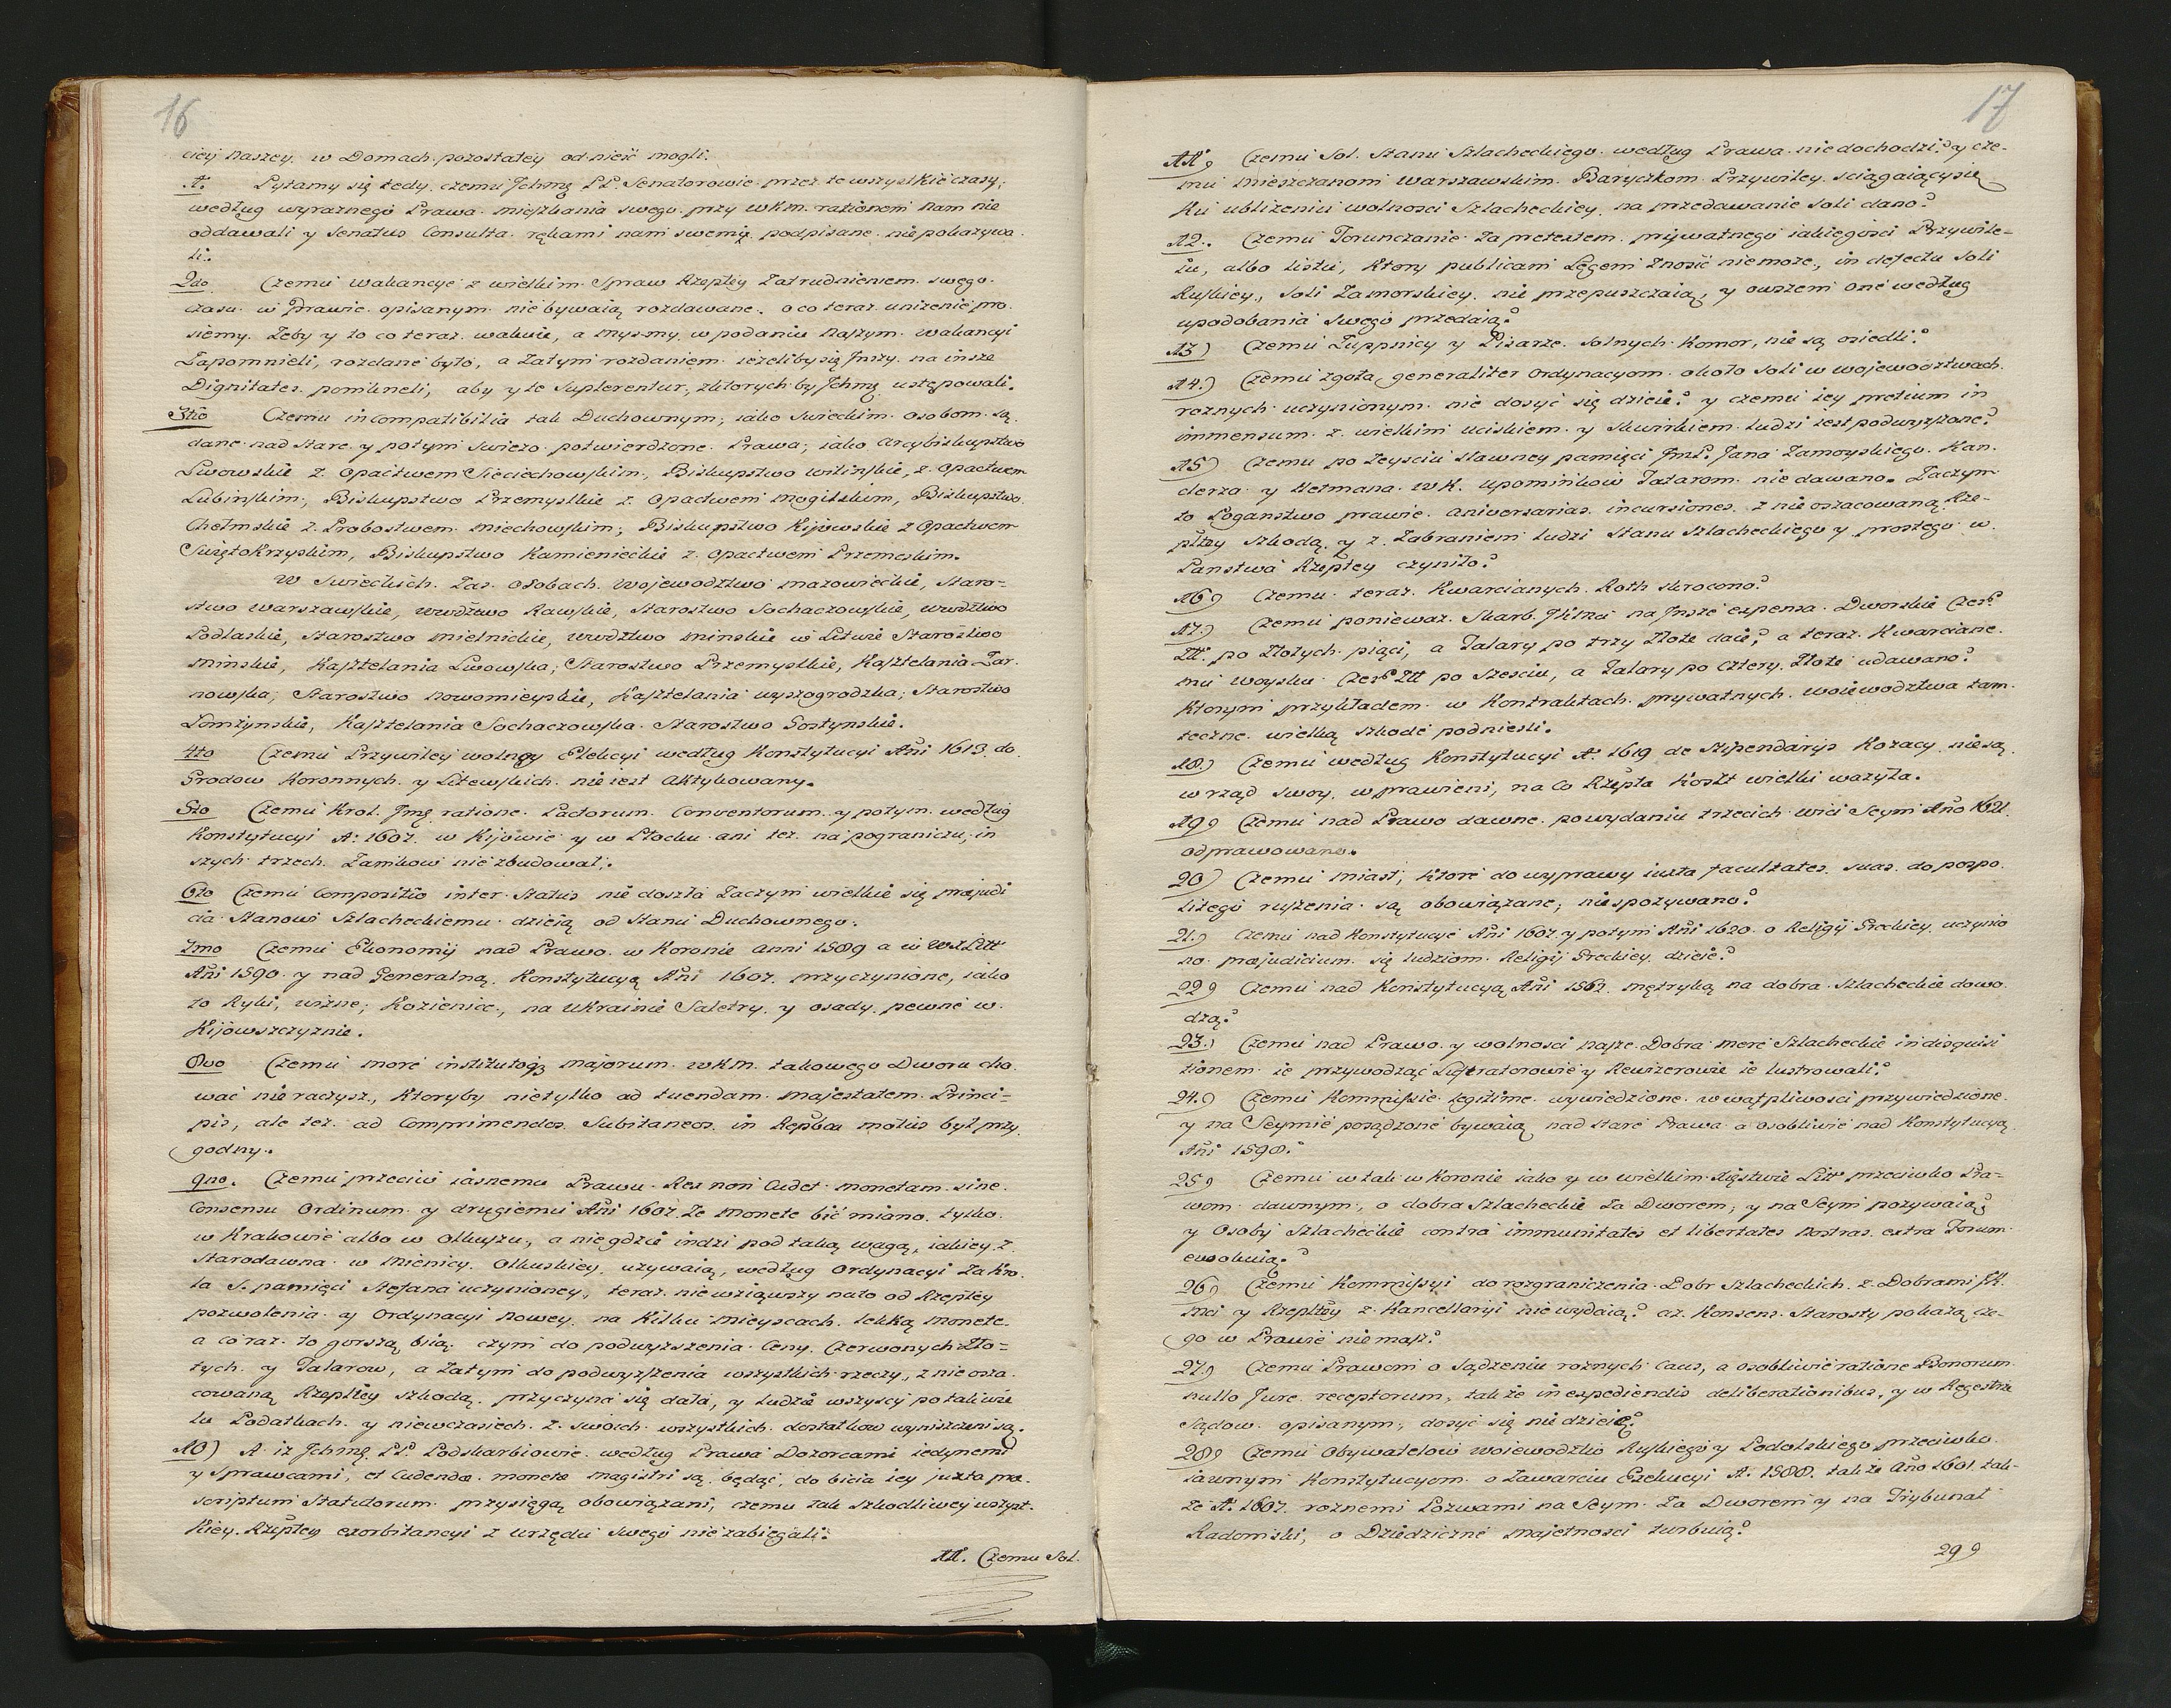 16
ciey naszey w Domach pozostałey odnieść mogli.
1. Pytamy się tedy, czemu Ichmę PP. Senatorowie przez te wszystkie czasy,
według wyraznego Prawa mieszkania swego przy WKM. rationem nam nie
oddawali y Senatus Consulta rękami nam swemi podpisane nie pokazywa
li.
2do Czemu wakancye z wielkim Spraw Rzeptey Zatrudnieniem swego
czasu w Prawie opisanym nie bywaią rozdawane. o co teraz unizenie pro
siemy. Zeby y to co teraz wakuie, a mysmy w podaniu naszym wakancyi
Zapomnieli, rozdane było, a Zatym rozdaniem iezeliby się Inszy na insze
Dignitates pomkneli, aby y te Suplerentur, z ktorych by Ichmę ustępowali.
3tio Czemu incompatibilia tak Duchownym, iako Swieckim osobom są
dane nad Stare y potym Swiezo potwierdzone Prawa; iako Arcybiskupstwo
Lwowskie z Opactwem Sieciechowskim, Biskupstwo wilinskie, z Opactwem
Lubinskim, Biskupstwo Przemyslkie z Opactwem Mogilskim, Biskupstwo
Chełmskie z Probostwem Miechowskim; Biskupstwo Kijowskie z Opactwem
Swięto Krzyskim, Biskupstwo Kamienieckie z Opactwem Przemeskim.
W Swieckich Zas osobach Wojewodztwo Mazowieckie, Staro=
stwo Warszawskie, wwdztwo Rawskie, Starostwo Sochaczowskie, wwdztwo
Podlaskie, Starostwo Mielnickie, wwdztwo Minskie w Litwie Starostwo
Minskie, Kasztelania Lwowska, Starostwo Przemyslkie, Kasztelania Tar.
nowska, Starostwo Nowomieyskie, Kasztelania wyszogrodzka; Starostwo
Łomzynskie, Kasztelania Sochaczowska Starostwo Gostynskie.
4to Czemu Przywiley wolney Elekcyi według Konstytucyi Ani 1613. do
Grodow Koronnych y Litewskich nie iest Aktykowany.
5to Czemu Krol Imę ratione Pactorum Conventorum y potym według
Konstytucyi A: 1607. w Kijowie y w Płocku ani tez na pograniczu, in
szych trzech Zamkow nie zbudował.
6to Czemu Compositio inter Status nie doszła Zaczym wielkie się præjudi
cia Stanowi Szlacheckiemu dzieią od Stanu Duchownego.
7mo Czemu Ekonomij nad Prawo w Koronie anni 1589 a w WXLitt
Ani 1590 y nad Generalną Konstytucyą Ani 1607. przyczynione, iako
to Ryki, wizne, Kozienice, na Ukrainie Saletry y osady pewne w
Kijowszczyznie.
8vo Czemu more institutoq; majorum WKM. takowego Dworu cho
wać nie raczysz, Ktoryby nietylko ad tuendam majestatem Princi=
pis, ale tez ad Comprimendos Subitaneos in Repbca motus był przy
godny.
9no. Czemu przeciw iasnemu Prawu Rex non Cudet monetam sine
Consensu Ordinum y drugiemu Ani 1607. Ze monete bić miano tylko
w Krakowie albo w Olkuszu, a nie gdzie indzi pod taką wagą, iakiey z
Starodawna w Mienicy Olkuskiey uzywaią, według Ordynacyi Za Kro.
la S. pamięci Stefana uczynioney, teraz nie wziąwszy nato od Rzeptey
pozwolenia y Ordynacyi nowey na Kilku mieyscach lekką monete
a co raz to gorszą biią. czym do podwyzszenia Ceny Czerwonych Zło=
tych y Talarow, a Zatym do podwyzszenia wszystkich rzeczy, z nie osza
cowaną Rzeptey szkodą, przyczyna się dała, y ludzie wszyscy po tak wie
lu Podatkach y niewczasiech z swoich wszystkich dostatkow wyniszczeni są.
10) A iz Ichmę PP Podskarbiowie według Prawa Dozorcami iedynemi
y Sprawcami, et Cudendæ monetæ magistri są będąc, do bicia iey juxta præ.
scriptum Statutorum przysięgą obowiązani, czemu tak Szkodliwey wszyst.
Kiey Rzeptey exorbitancyi z urzędu swego nie zabiegali.
11. Czemu Sol.
17
11) Czemu Sol Stanu Szlacheckiego według Prawa nie dochodzi? y cze-
mu Mieszczanom Warszawskim Baryczkom Przywiley sciągaiący się
Ku ubliżeniu wolnosci Szlacheckiey, na przedawanie Soli dano?
12. Czemu Torunczanie Za pretextem prywatnego iakiegosci Przywile-
iu, albo listu, Ktory publicam Legem Znosić nie moze, in defectu Soli
Ruskiey, Soli Zamorskiey nie przepuszczaią, y owszem one według
upodobania swego przedaią?
13) Czemu Zuppnicy y Pisarze Solnych Komor, nie są osiedli?
14.) Czemu zgoła generaliter ordynacyom około Soli w wojewodztwach
roznych uczynionym nie dosyć się dzieie? y czemu iey pretium in
immensum z wielkim uciskiem y Skwirkiem ludzi iest podwyzszone?
15) Czemu po Zeysciu sławney pamięci Jmć P. Jana Zamoyskiego Kan.
clerza y Hetmana WK. upominkow Tatarom nie dawano. Zaczym
to Poganstwo prawie aniversarias incursiones z nie oszacowaną Rze-
pltey szkodą y z Zabraniem ludzi Stanu Szlacheckiego y prostego w
Panstwa Rzeptey czyniło?
16) Czemu teraz Kwarcianych Roth skrocono?
17.) Czemu poniewaz Skarb JKMci na Insze expensa Dworskie Czer.
Złł. po Złotych piąci, a Talary po trzy Złote daie, a teraz Kwarciane.
mu woysku Czer. Złł po Szesciu, a Talary po Cztery Złote udawano?
Ktorym przykładem w Kontraktach prywatnych woiewodztwa tam.
teczne wielką szkode podniesli.
18.) Czemu według Konstytucyi A: 1619 de Stipendarijs Kozacy nie są
w rząd swoy wprawieni, na Co Rzepta Koszt wielki wazyła.
19) Czemu nad Prawo dawne po wydaniu trzecich wici Seym Ano 1621.
odprawowano.
20) Czemu Miast, Ktore do wyprawy iuxta facultates suas do pospo.
litego ruszenia są obowiązane, nie spozywano?
21.) Czemu nad Konstytucye Ani 1607. y potym Ani 1620. o Religij Greckiey uczynio
no præjudicium się ludziom Religij Greckiey dzieie?
22) Czemu nad Konstytucyą Ani 1562. mętryką na dobra Szlacheckie dowo.
dzą?
23.) Czemu nad Prawo y wolnosci nasze Dobra mere Szlacheckie in disquisi
tionem ie przywodząc Lustratorowie y Rewizorowie ie lustrowali?
24.) Czemu Kommissie legitime wywiedzione w wątpliwosci przywiedzione
y na Seymie posądzone bywaią nad stare Prawa a osobliwie nad Konstytucyą
Ani 1598.
25) Czemu w tak w Koronie iako y w wielkim Xięstwie Litt przeciwko Pra=
wom dawnym, o dobra Szlacheckie Za Dworem, y na Seym pozywaią,
y Osoby Szlacheckie contra immunitates et libertates nostras extra Forum
ewokuią?
26) Czemu Kommissyi do rozgraniczenia Dobr Szlacheckich z Dobrami JK.
Mci y Rzepltey z Kancellaryi nie wydaią? az Konsens Starosty pokazą cze-
go w Prawie niemasz?
27.) Czemu Prawom o Sądzeniu roznych Caus, a osobliwie ratione Bonorum
nullo Jure receptorum, także in expediendis deliberationibus, y w Regestrze
Sądow opisanym, dosyć się nie dzieie?
28) Czemu Obywatelow Woiewodztw Ruskiego y Podolskiego przeciwko
iawnym Konstytucyom o Zawarciu Exekucyi A: 1588. także Ano 1601. tak-
ze A: 1607. roznemi Pozwami na Seym Za Dworem y na Trybunał
Radomski, o Dziedziczne Majetnosci turbuią?
29)